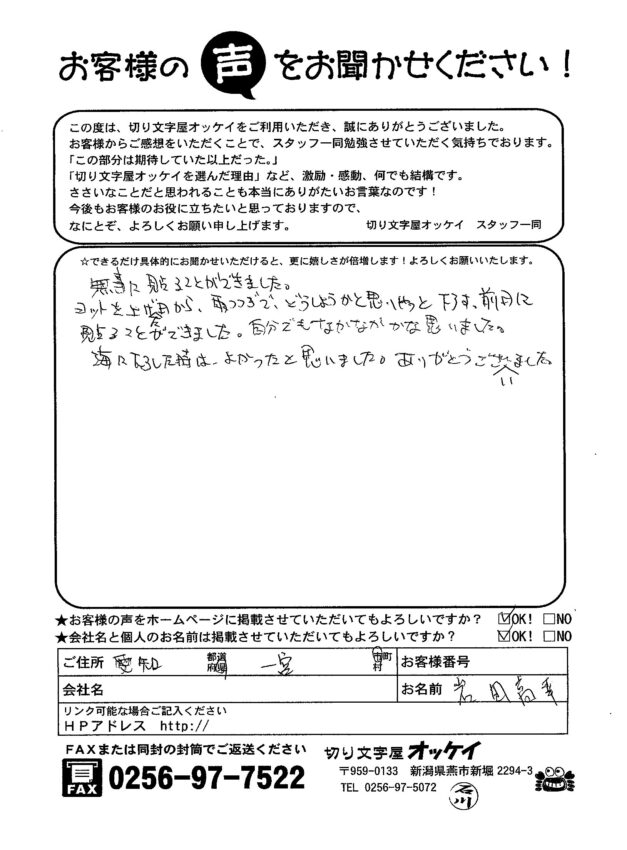 お客様の声をお聞かせください！
この度は、切り文字屋オッケイをご利用いただき、誠にありがとうございました。
お客様からご感想をいただくことで、スタッフ一同勉強させていただく気持ちでおります。
「この部分は期待していた以上だった。」
「切り文字屋オッケイを選んだ理由」など、激励・感動、何でも結構です。
ささいなことだと思われることも本当にありがたいお言葉なのです！
今後もお客様のお役に立ちたいと思っておりますので、
なにとぞ、よろしくお願い申し上げます。 切り文字屋オッケイ スタッフ一同
☆できるだけ具体的にお聞かせいただけると、更に嬉しさが倍増します！よろしくお願いいたします。
無事に貼ることができました。
ヨットを上から、どうしようかと思い 下ろす、前日に
貼ることができました。自分でもなかなか かな思いました。
海に下ろした時は、よかったと思いました。ありがとうございました。
★お客様の声をホームページに掲載させていただいてもよろしいですか？ ☑OK! □NO
★会社名と個人のお名前は掲載させていただいてもよろしいですか？ ☑OK! □NO
ご住所 愛知 都道府県 一宮 市町村 お客様番号
会社名 お名前 岩田
リンク可能な場合ご記入ください
ＨＰアドレス http://
ＦＡＸまたは同封の封筒でご返送ください 切り文字屋 オッケイ
FAX 0256-97-7522 〒959-0133 新潟県燕市新堀 2294-3
TEL 0256-97-5072 石川